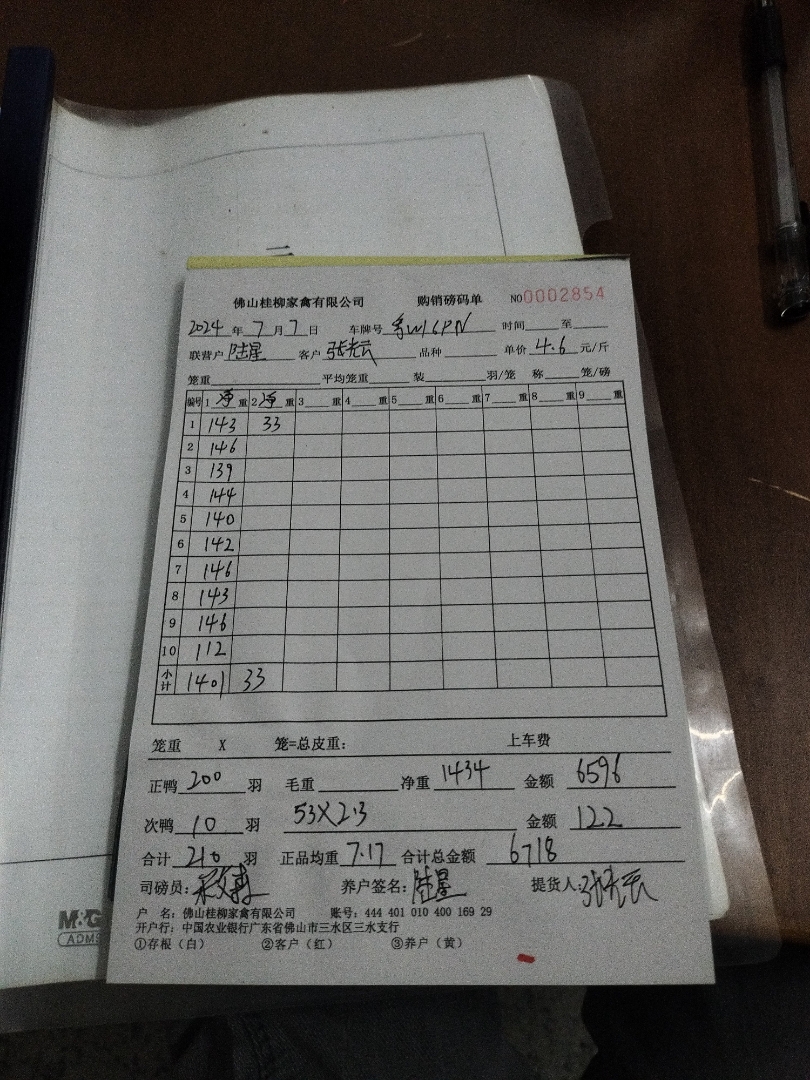 三
佛山桂柳家禽有限公司 购销磅码单 NO0002854
2024 年 7 月 7 日 车牌号 粤W16PN 时间 至
联营户 陆星 客户 张光云 品种 单价 4.6 元/斤
笼重 平均笼重 装 羽/笼 称 笼/磅
编号 1 净 重 2 净 重 3 重 4 重 5 重 6 重 7 重 8 重 9 重
1 143 33
2 146
3 139
4 144
5 140
6 142
7 146
8 143
9 146
10 112
小计 1401 33
笼重 X 笼=总皮重: 上车费
正鸭 200 羽 毛重 净重 1434 金额 6596
次鸭 10 羽 53X2.3 金额 122
合计 210 羽 正品均重 7.17 合计总金额 6718
司磅员: 养户签名: 陆星 提货人: 张光云
户 名: 佛山桂柳家禽有限公司 账号: 444 401 010 400 169 29
开户行: 中国农业银行广东省佛山市三水区三水支行
①存根(白) ②客户(红) ③养户(黄)
M&G
ADMS